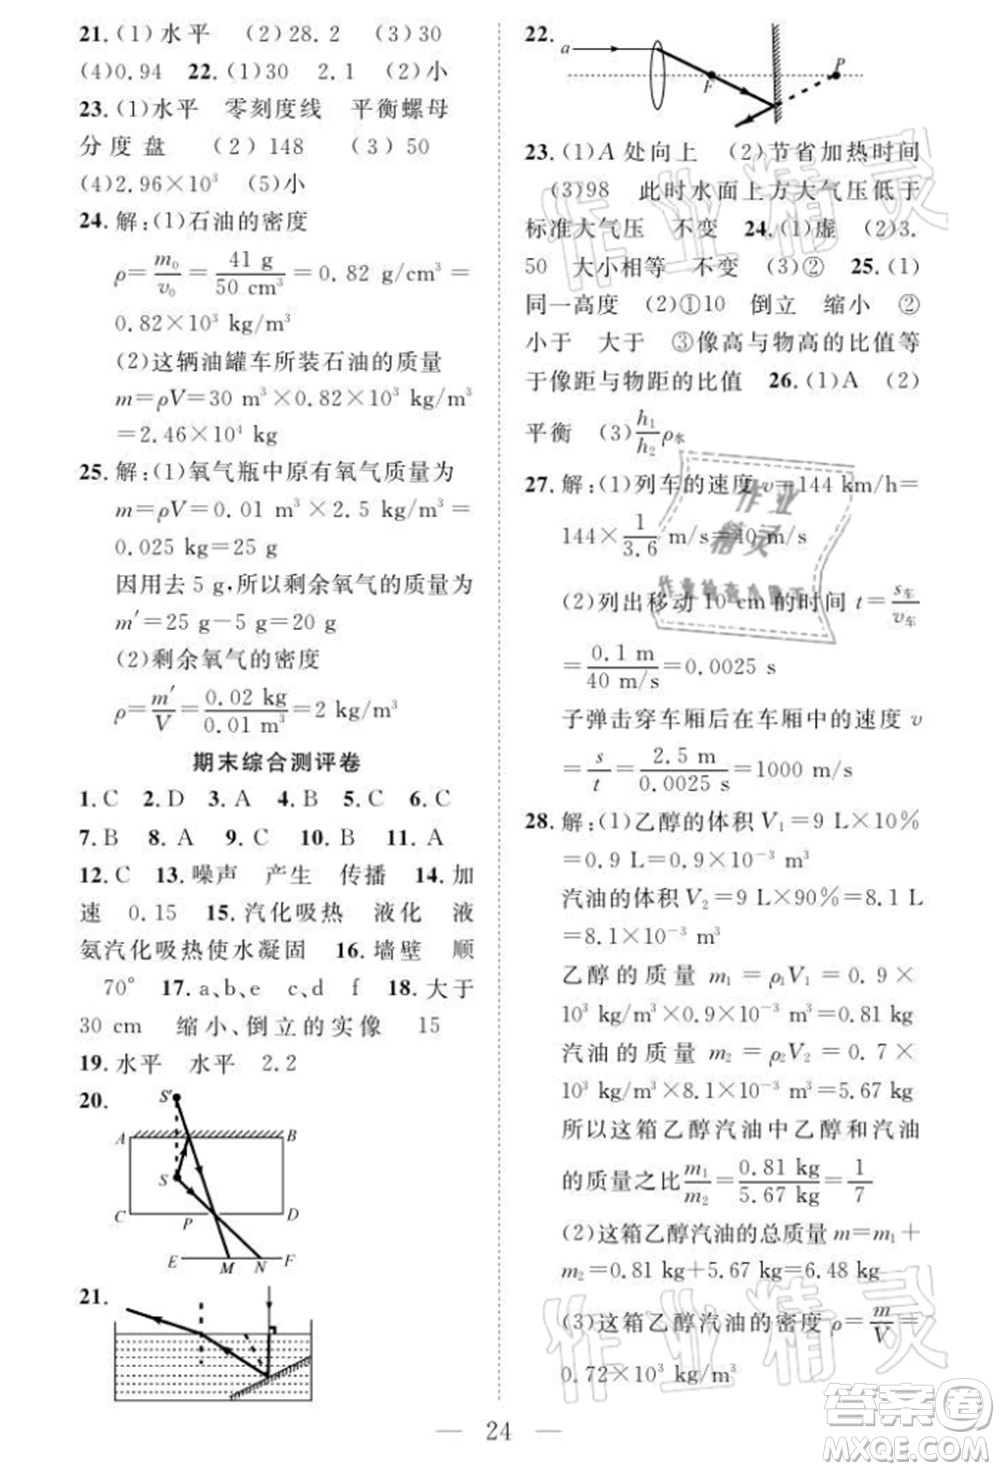 21. (1)水平　(2)28.2　(3)30
(4)0.94　22. (1)30　2.1　(2)小
23. (1)水平　零刻度线　平衡螺母
分度盘　(2)148　(3)50
(4)2.96×10³　(5)小
24. 解:(1)石油的密度
ρ=m₀/v₀=41 g/50 cm³=0.82 g/cm³=
0.82×10³ kg/m³
(2)这辆油罐车所装石油的质量
m=ρV=30 m³×0.82×10³ kg/m³
=2.46×10⁴ kg
25. 解:(1)氧气瓶中原有氧气质量为
m=ρV=0.01 m³×2.5 kg/m³=
0.025 kg=25 g
因用去 5 g,所以剩余氧气的质量为
m′=25 g-5 g=20 g
(2)剩余氧气的密度
ρ=m′/V=0.02 kg/0.01 m³=2 kg/m³
期末综合测评卷
1. C　2. D　3. A　4. B　5. C　6. C
7. B　8. A　9. C　10. B　11. A
12. C　13. 噪声　产生　传播　14. 加
速　0.15　15. 汽化吸热　液化　液
氨汽化吸热使水凝固　16. 墙壁　顺
70°　17. a、b、e　c、d　f　18. 大于
30 cm　缩小、倒立的实像　15
19. 水平　水平　2.2
20.
S′
A
B
S
C
P
D
E
M
N
F
21.
22.
a
F
P
23. (1)A 处向上　(2)节省加热时间
(3)98　此时水面上方大气压低于
标准大气压　不变　24. (1)虚　(2)3.
50　大小相等　不变　(3)②　25. (1)
同一高度　(2)①10　倒立　缩小　②
小于　大于　③像高与物高的比值等
于像距与物距的比值　26. (1)A　(2)
平衡　(3)h₁/h₂ρ水
27. 解:(1)列车的速度 v=144 km/h=
144×1/3.6 m/s=40 m/s
(2)列出移动 10 cm 的时间 t=s车/v车
=0.1 m/40 m/s=0.0025 s
子弹击穿车厢后在车厢中的速度 v
=s/t=2.5 m/0.0025 s=1000 m/s
28. 解:(1)乙醇的体积 V₁=9 L×10%
=0.9 L=0.9×10⁻³ m³
汽油的体积 V₂=9 L×90%=8.1 L
=8.1×10⁻³ m³
乙醇的质量 m₁=ρ₁V₁=0.9×
10³ kg/m³×0.9×10⁻³ m³=0.81 kg
汽油的质量 m₂=ρ₂V₂=0.7×
10³ kg/m³×8.1×10⁻³ m³=5.67 kg
所以这箱乙醇汽油中乙醇和汽油
的质量之比m₁/m₂=0.81 kg/5.67 kg=1/7
(2)这箱乙醇汽油的总质量 m=m₁+
m₂=0.81 kg+5.67 kg=6.48 kg
(3)这箱乙醇汽油的密度 ρ=m/V=
0.72×10³ kg/m³
— 24 —
作业精灵
作业精灵
作业精灵
答案圈
MXQE.COM